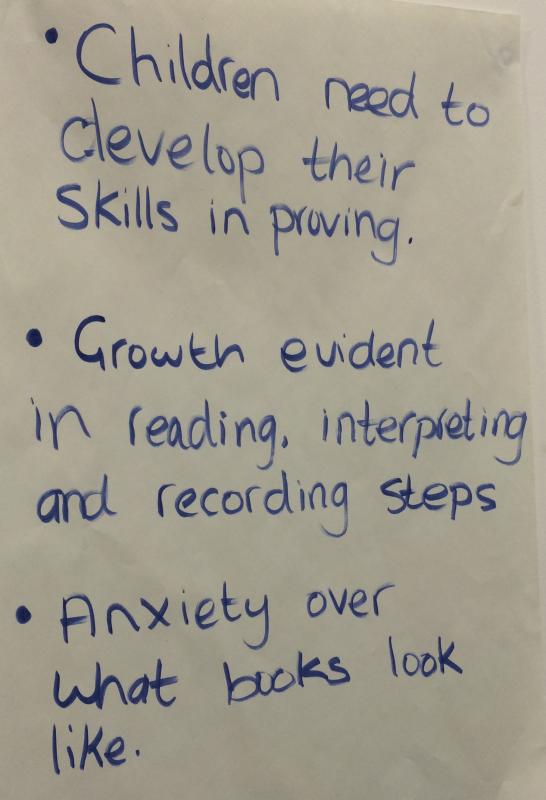 • Children need to
develop their
Skills in proving.
• Growth evident
in reading, interpreting
and recording steps
• Anxiety over
what books look
like.